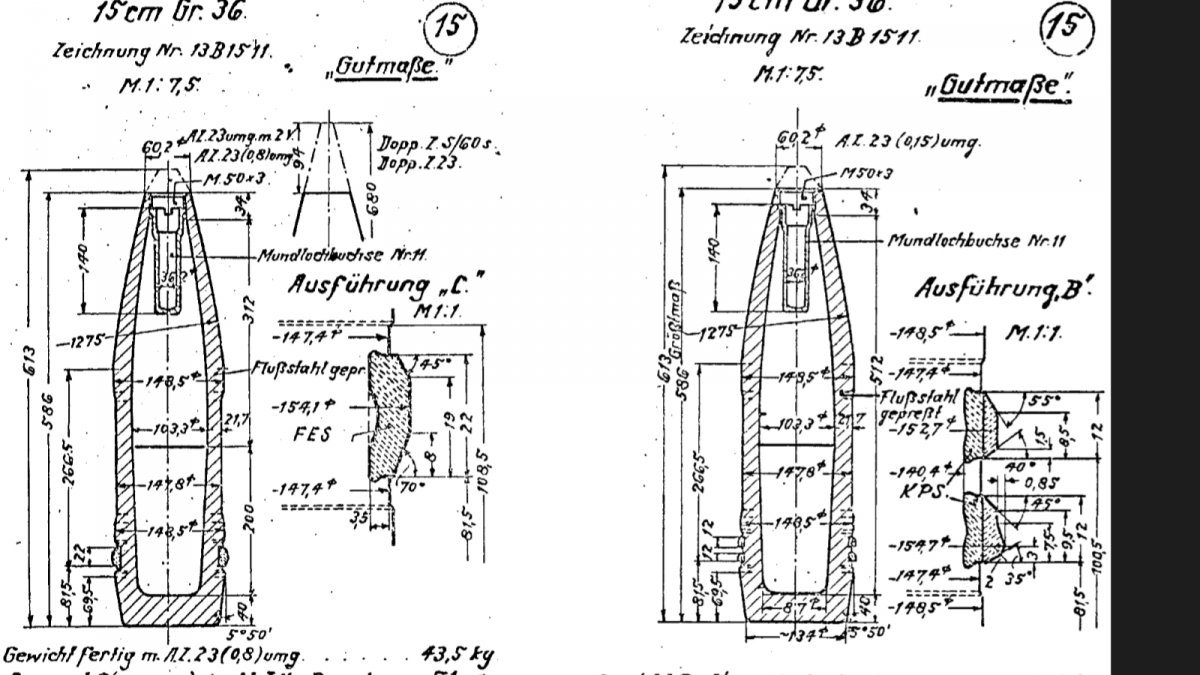 15cm Gr. 36.
15
Zeichnung Nr. 13B1511.
"Gutmaße."
M.1:7,5.
60,2⌀
A.Z.23umg.m.2V.
A.Z.23(0,8)umg
M.50x3
94
680
Dopp.Z.S/60s.
Dopp.Z.23.
34
140
Mundlochbuchse Nr.11.
36,2⌀
Ausführung „C."
M1:1.
312
1275
613
586
266,5
Flußstahl gepr.
148,5⌀
103,3⌀
21,7
147,8⌀
148,5⌀
200
22
81,5
69,5
40
5°50'
-147,4⌀
45°
-154,1⌀
FES
19
22
8
108,5
-147,4⌀
70°
3,5
81,5
Gewicht fertig m. A.Z.23(0,8)umg. . . . . . . 43,5 kg
15cm Gr. 36.
15
Zeichnung Nr. 13B1511.
M.1:7,5.
„Gutmaße".
60,2⌀
A.Z.23(0,15)umg.
M50x3
34
140
Mundlochbuchse Nr.11
Ausführung „B".
M.1:1.
1275
613
Größtmaß
586
266,5
512
148,5⌀
Flußstahl
gepreßt
103,3⌀
21,7
147,8⌀
148,5⌀
12
12
81,5
69,5
87⌀
40
~134⌀
5°50'
-148,5⌀
-147,4⌀
55°
-152,7⌀
1,5
8,5
12
-140,4⌀
40°
KPS.
0,85
45°
-154,7⌀
3
7,5
9,5
12
100,5
-147,4⌀
2
35°
-148,5⌀
81,5